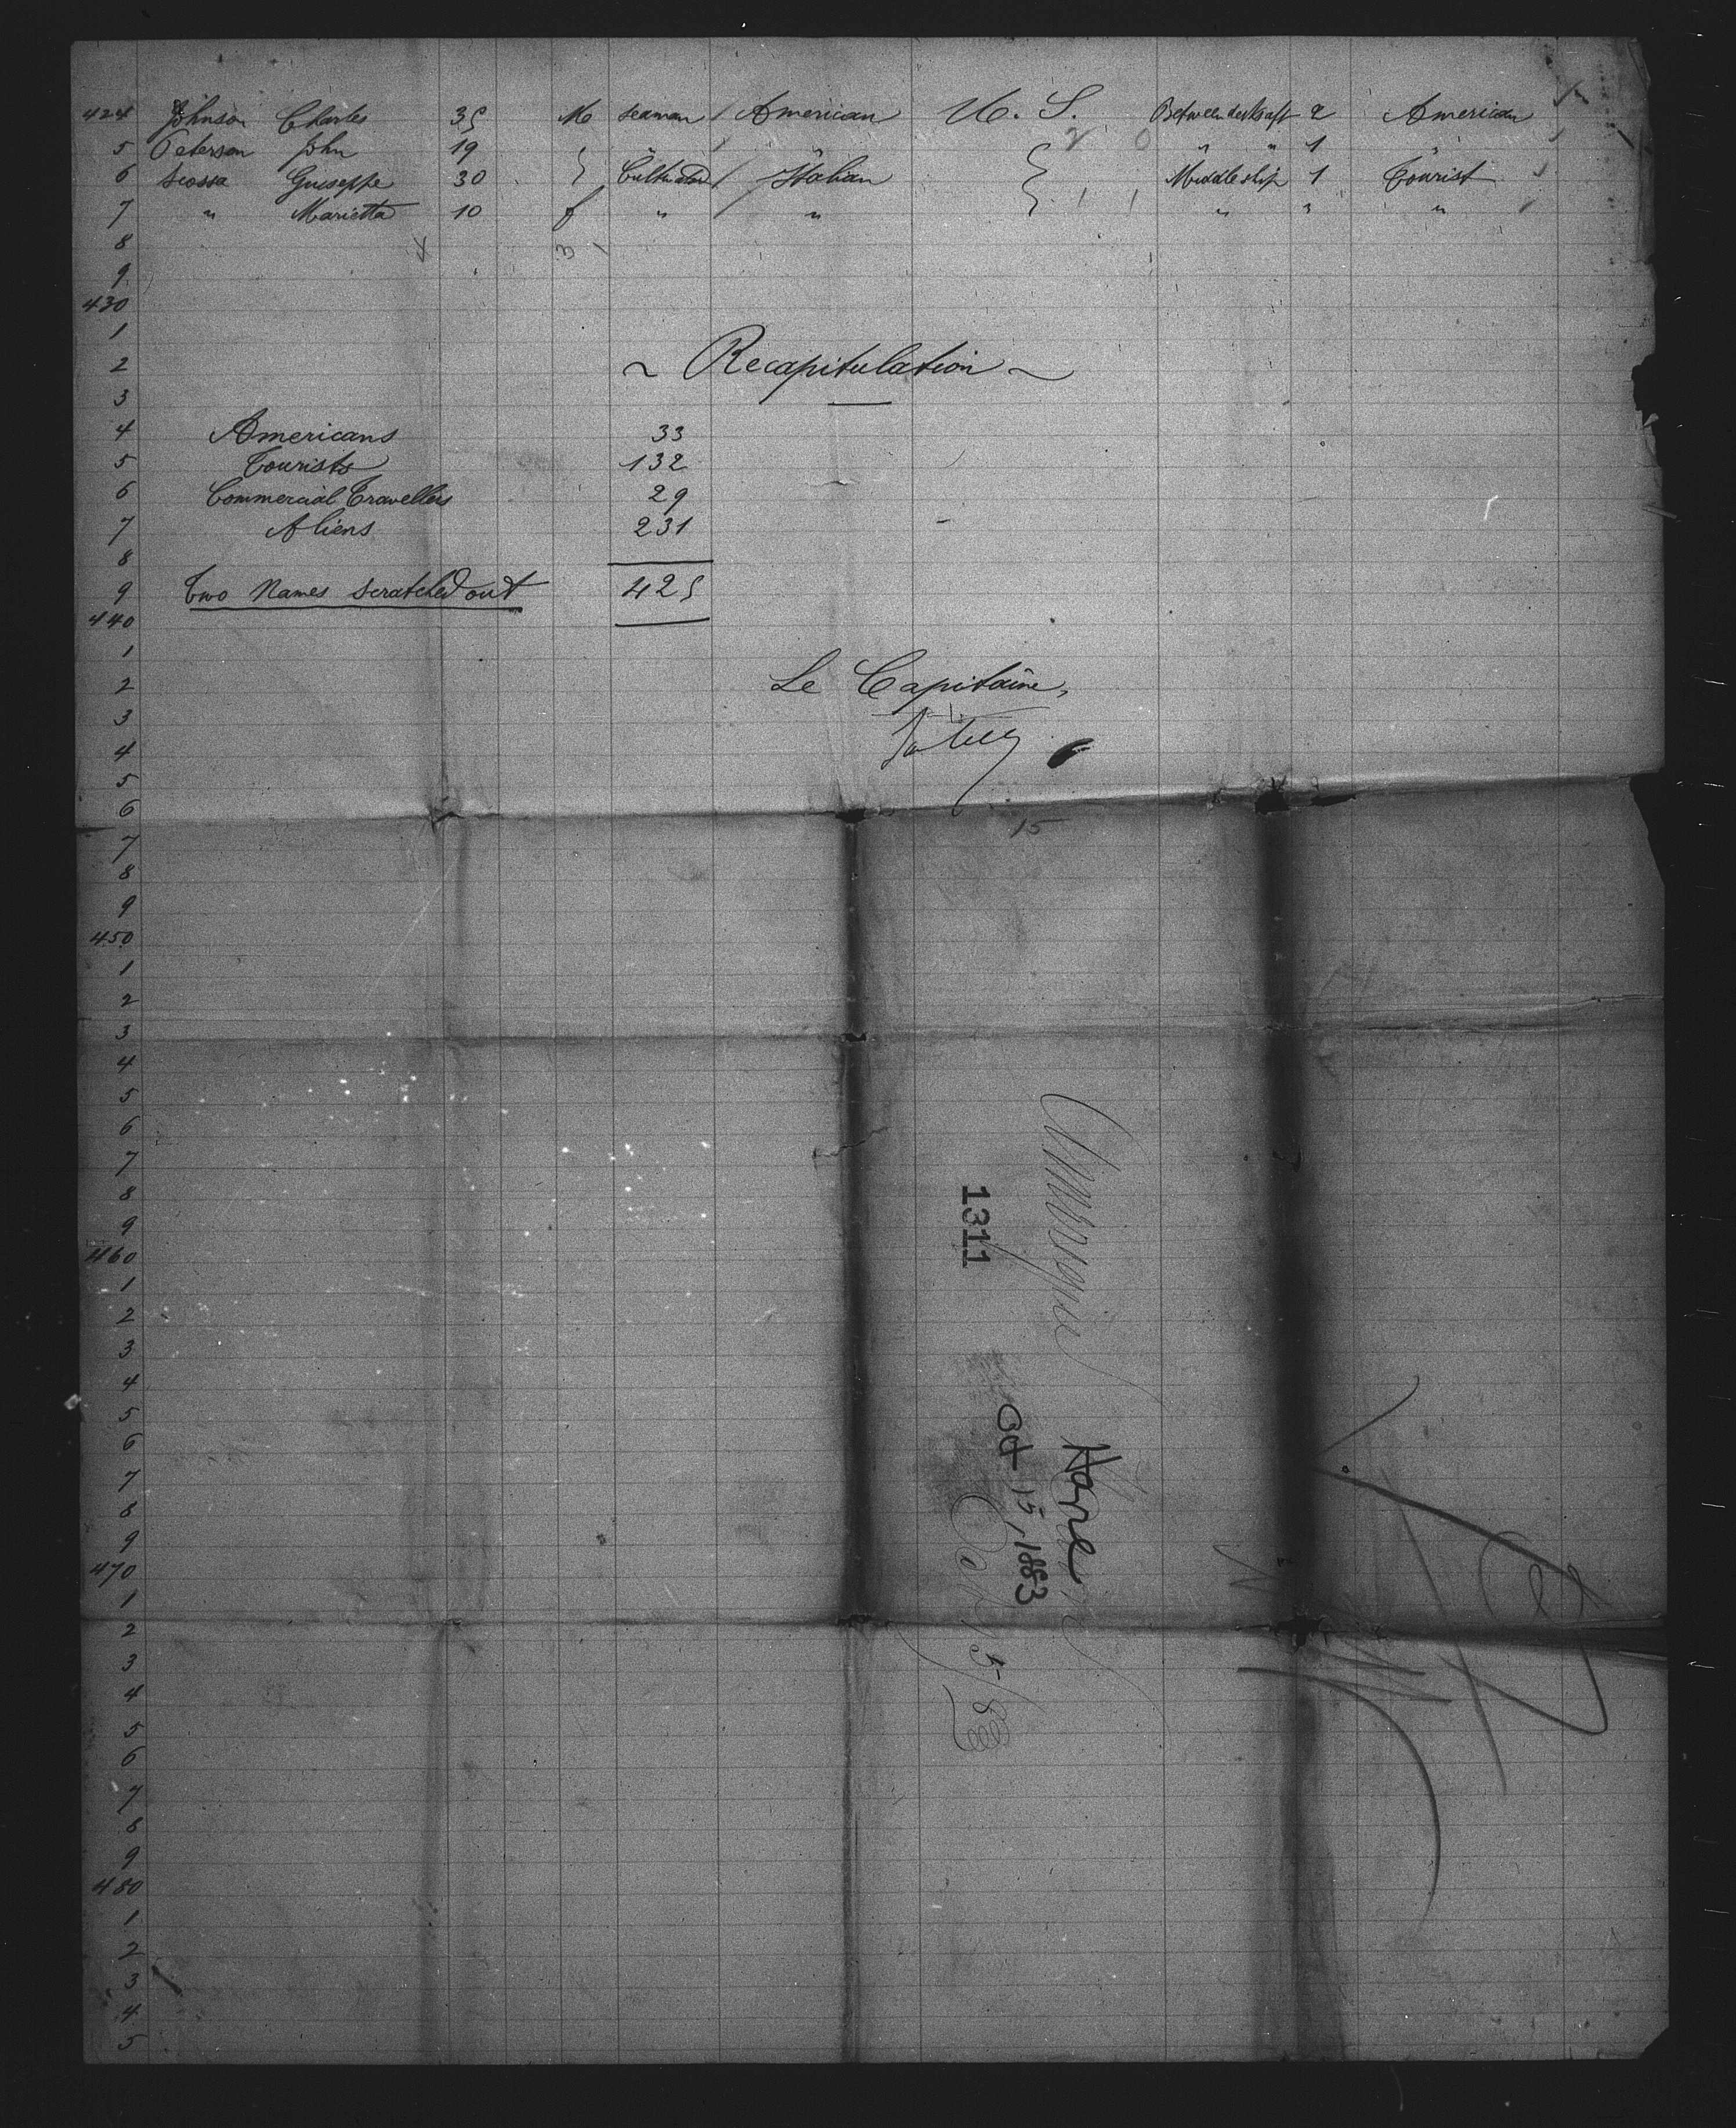 424 Johnson Charles 35 M seaman American U. S. Between decks aft 2 American
5 Peterson John 19 " " " " 1 "
6 Giuseppe 30 Italian Middleship 1 Tourist
7 " Marietta 10 f " " " " "
8
9
430
1
2 ~ Recapitulation ~
3
4 Americans 33
5 Tourists 132
6 Commercial Travellers 29
7 Aliens 231
8
9 Two Names scratched out 425
440
1
2 Le Capitaine,
3
4
5
6
7 15
8
9
450
1
2
3
4
5
6
7
8
9
460
1
2
3
4
5
6
7
8
9
470
1
2
3
4
5
6
7
8
9
480
1
2
3
4
5
1311
Havre
Oct 15, 1883